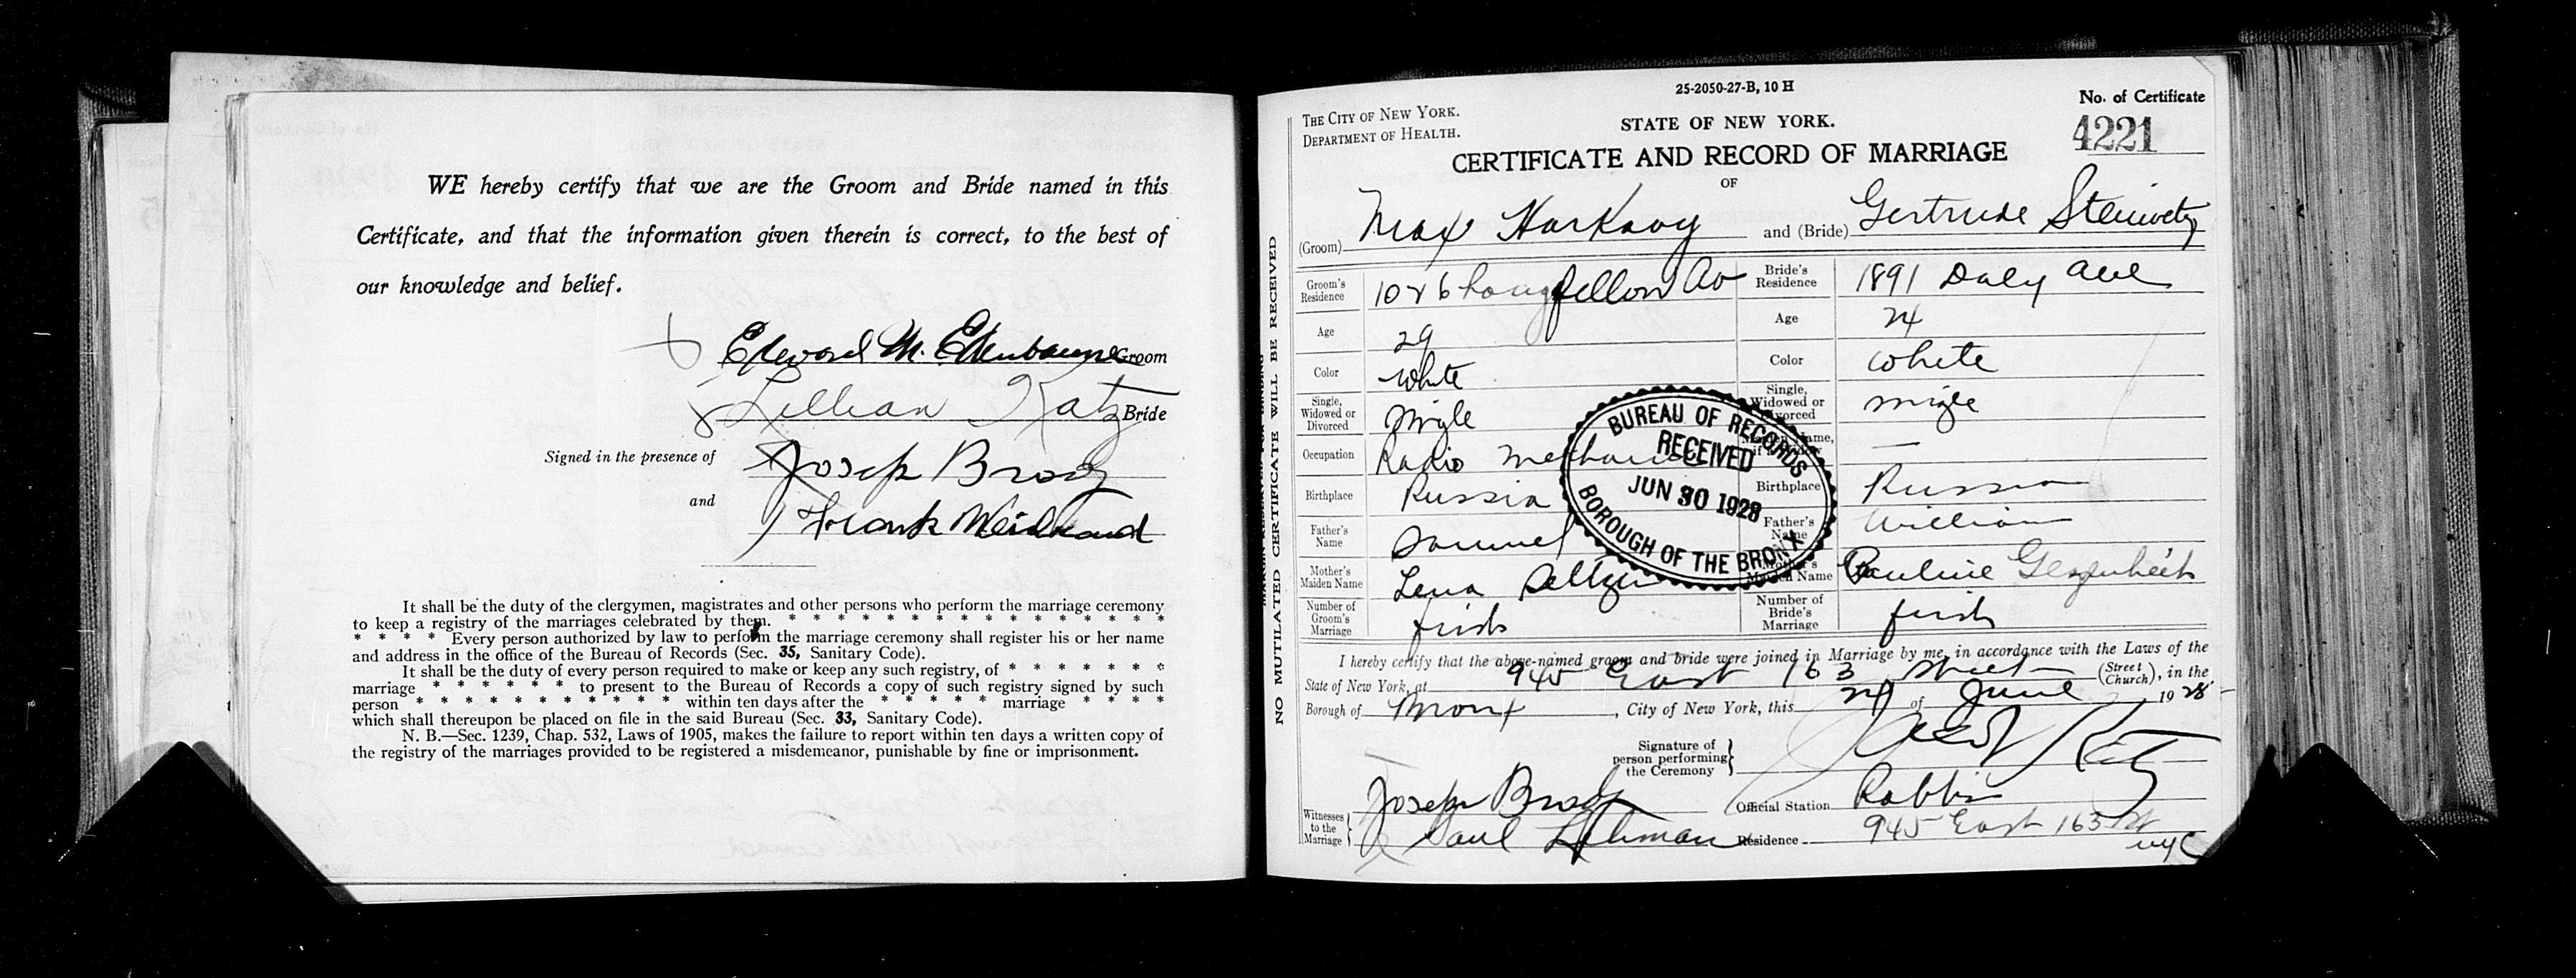 WE hereby certify that we are the Groom and Bride named in this
Certificate, and that the information given therein is correct, to the best of
our knowledge and belief.
Edward M. Groom
Lillian Katz Bride
Signed in the presence of Joseph Brody
and Frank
It shall be the duty of the clergymen, magistrates and other persons who perform the marriage ceremony
to keep a registry of the marriages celebrated by them. * * * * * * * * * * * * * *
* * * * Every person authorized by law to perform the marriage ceremony shall register his or her name
and address in the office of the Bureau of Records (Sec. 35, Sanitary Code).
It shall be the duty of every person required to make or keep any such registry, of * * * * * * *
marriage * * * * * * to present to the Bureau of Records a copy of such registry signed by such
person * * * * * * * * * * * within ten days after the * * * * * marriage * * * *
which shall thereupon be placed on file in the said Bureau (Sec. 33, Sanitary Code).
N. B.—Sec. 1239, Chap. 532, Laws of 1905, makes the failure to report within ten days a written copy of
the registry of the marriages provided to be registered a misdemeanor, punishable by fine or imprisonment.
NO MUTILATED CERTIFICATE WILL BE RECEIVED
25-2050-27-B, 10 H
THE CITY OF NEW YORK.
DEPARTMENT OF HEALTH.
STATE OF NEW YORK.
No. of Certificate
4221
CERTIFICATE AND RECORD OF MARRIAGE
OF
(Groom) Max Harkavy and (Bride) Gertrude Steinvetz
Groom's Residence 1026 Longfellow Av Bride's Residence 1891 Daly Ave
Age 29 Age 24
Color White Color White
Single, Widowed or Divorced Single Single, Widowed or Divorced Single
Occupation Radio Mechanic Maiden Name, if a Widow —
Birthplace Russia Birthplace Russia
Father's Name Samuel Father's Name William
Mother's Maiden Name Lena Mother's Maiden Name Pauline
Number of Groom's Marriage first Number of Bride's Marriage first
BUREAU OF RECORDS
RECEIVED
JUN 30 1928
BOROUGH OF THE BRONX
I hereby certify that the above-named groom and bride were joined in Marriage by me, in accordance with the Laws of the
State of New York, at 945 East 163 Street (Street Church), in the
Borough of Bronx, City of New York, this 24 of June 1928
Signature of person performing the Ceremony } Katz
Witnesses to the Marriage } Joseph Brody Official Station Rabbi
Saul Lehman Residence 945 East 163 St
NYC